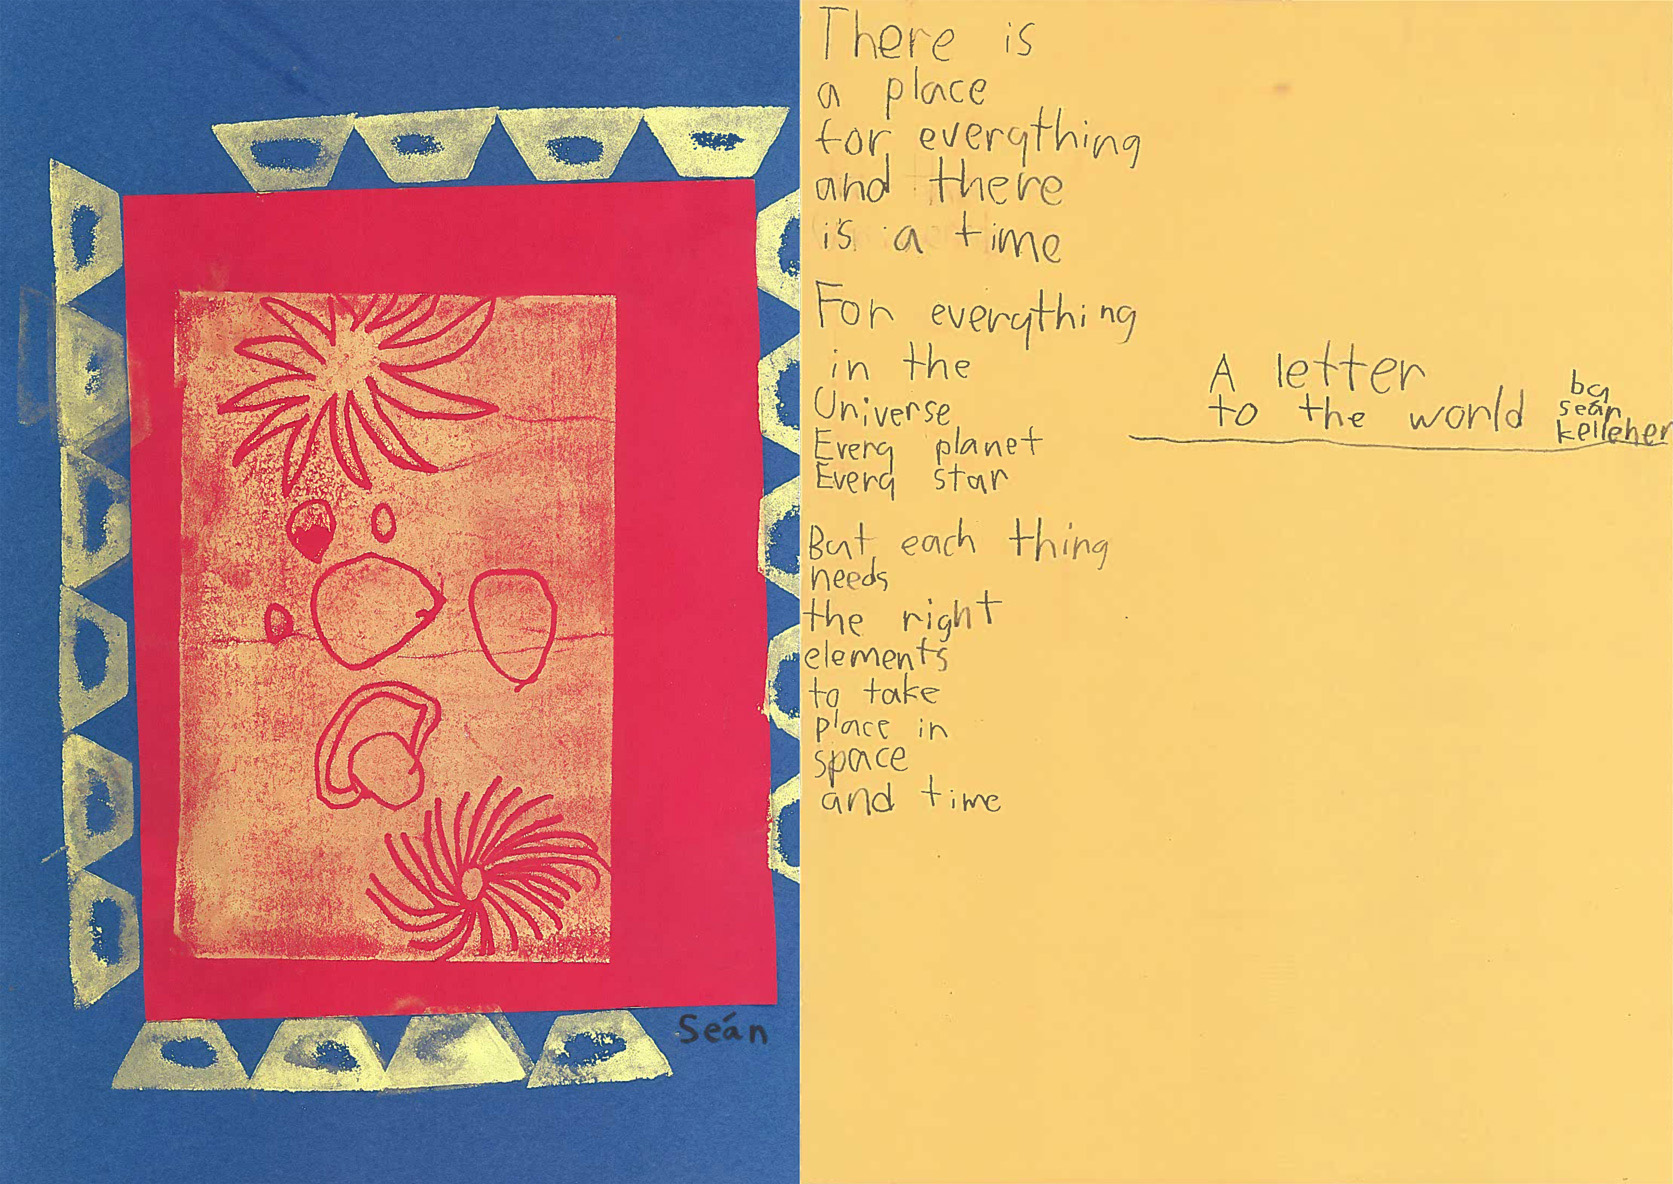 There is
a place
for everything
and there
is a time
For everything
in the
Universe
Every planet
Every star
But each thing
needs
the right
elements
to take
place in
space
and time
A letter
to the world
by
seán
kelleher
Seán